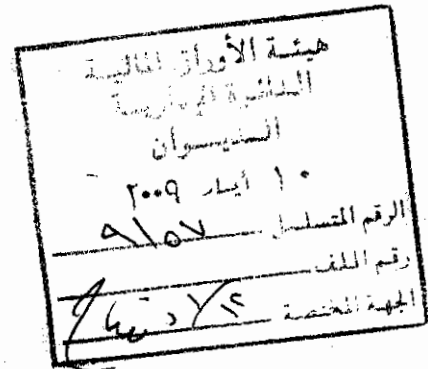 هيئة الأوراق المالية
الدائرة الإدارية
الديوان
١٠ أيار ٢٠٠٩
الرقم المتسلسل ٩١٥٧
رقم الملف
الجهة المختصة